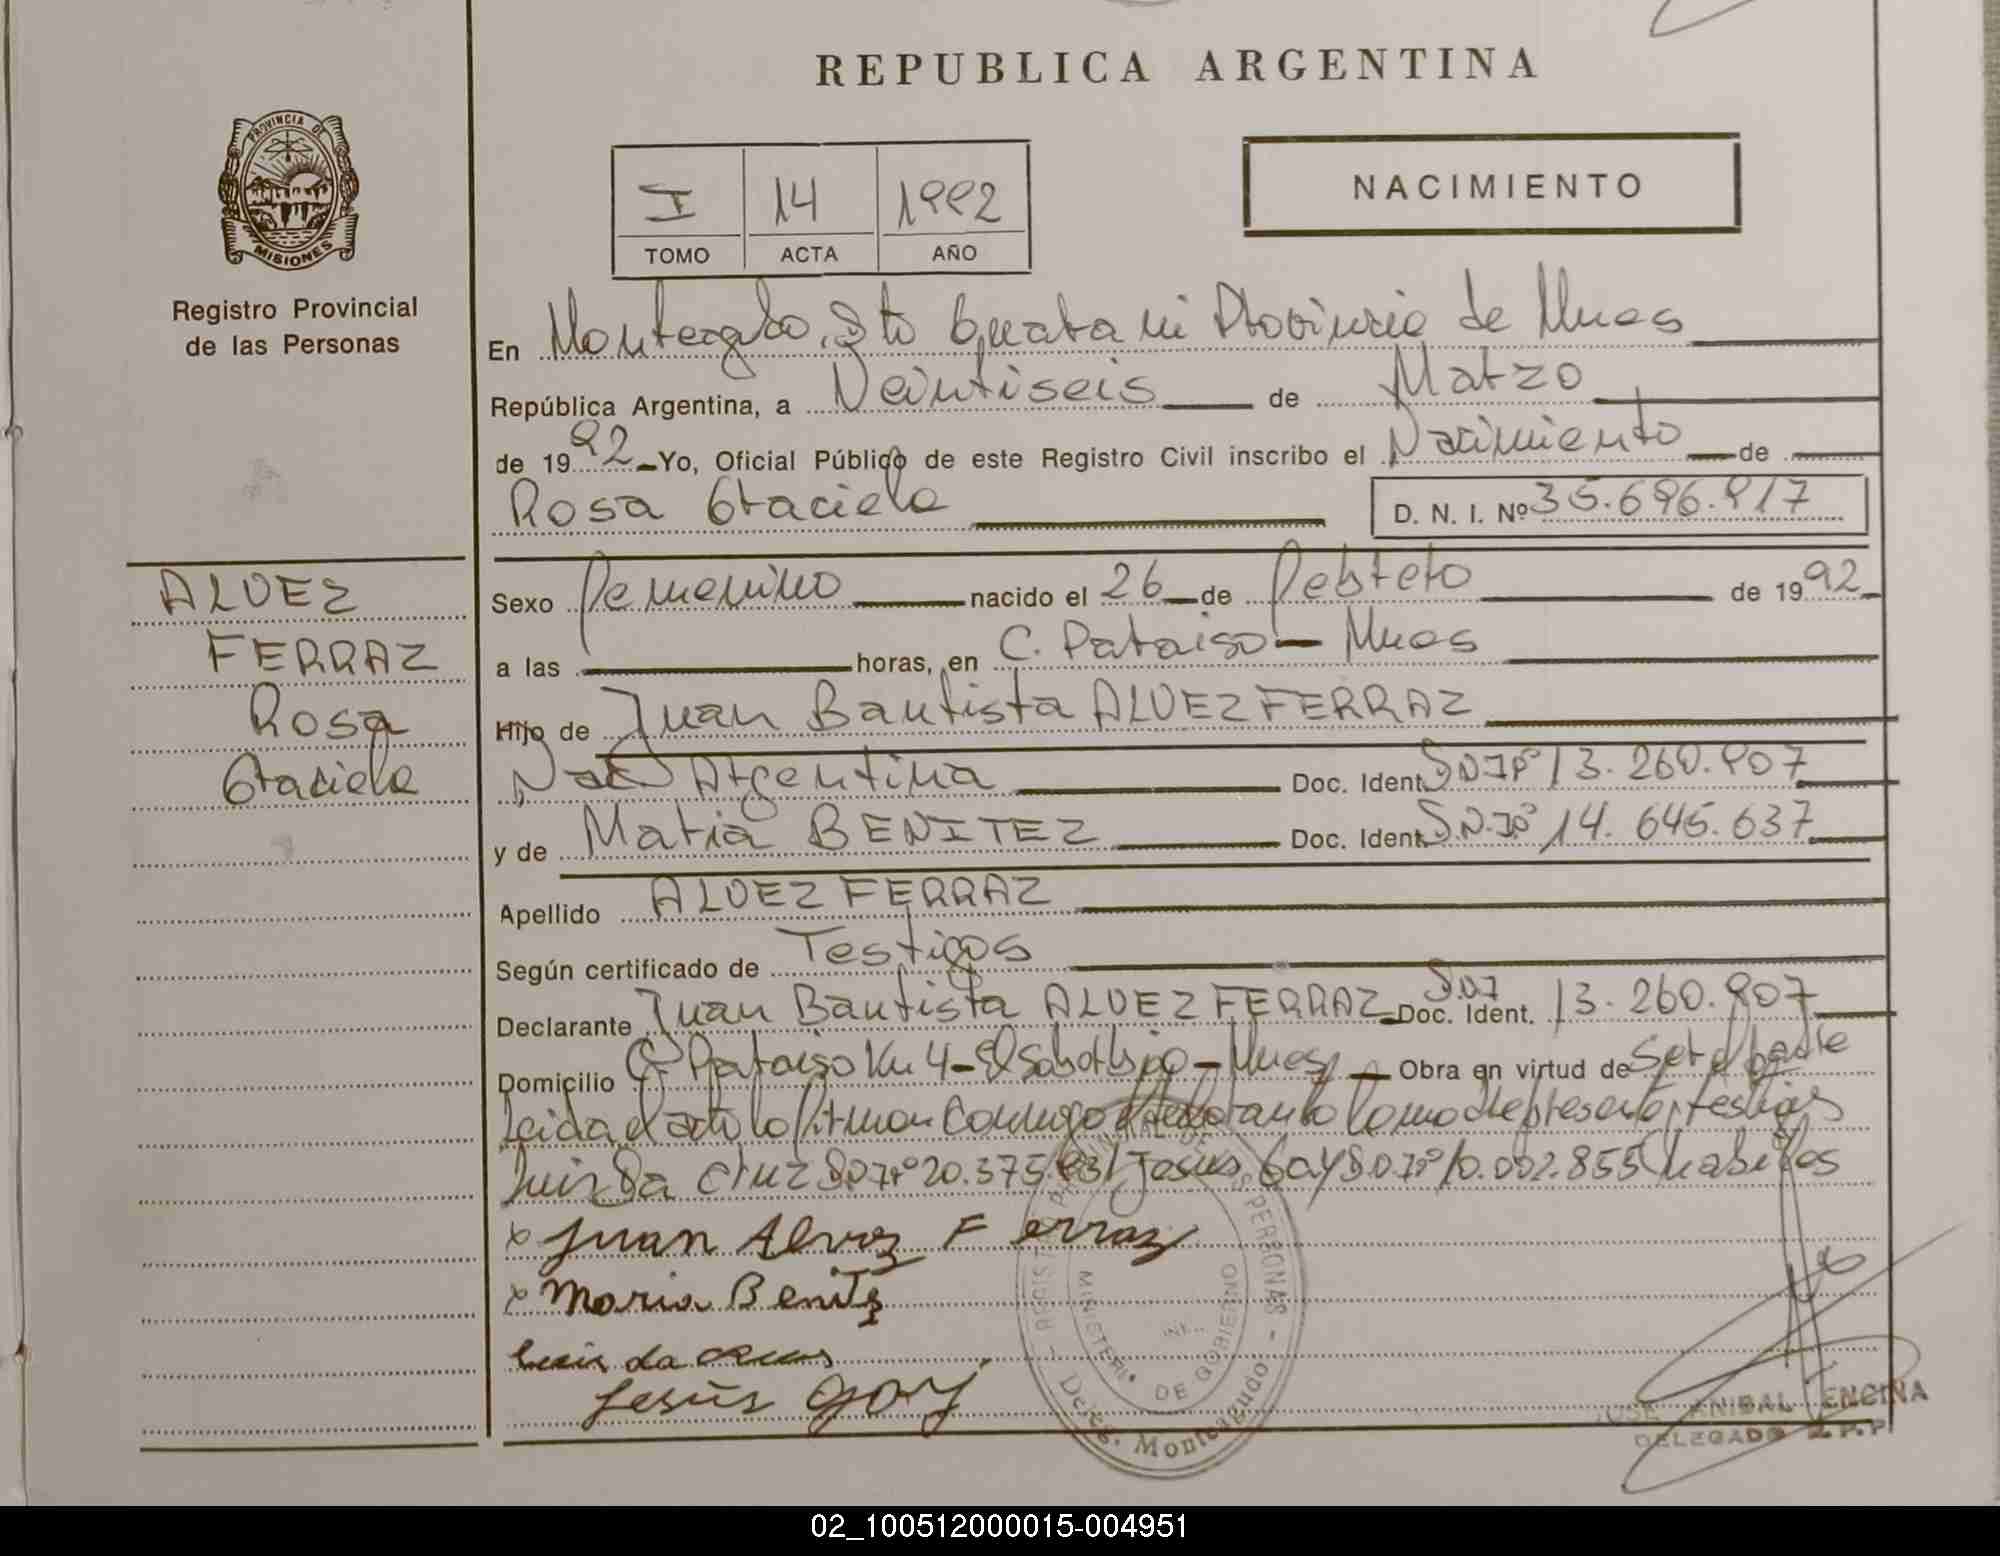 REPUBLICA ARGENTINA
PROVINCIA DE
MISIONES
Registro Provincial
de las Personas
I 14 1992
TOMO ACTA AÑO
NACIMIENTO
En Monteagudo, Dto Guarani Provincia de Mnes
República Argentina, a Veintiseis de Marzo
de 1992 Yo, Oficial Público de este Registro Civil inscribo el Nacimiento de
Rosa Graciela D. N. I. Nº 35.696.917
ALVEZ
FERRAZ
Rosa
Graciela
Sexo Femenino nacido el 26 de Febrero de 1992
a las horas, en C. Paraiso - Mnes
Hijo de Juan Bautista ALVEZ FERRAZ
Nac Argentina Doc. Ident. D.N.I Nº 13.260.907
y de Maria BENITEZ Doc. Ident. D.N.I Nº 14.645.637
Apellido ALVEZ FERRAZ
Según certificado de Testigos
Declarante Juan Bautista ALVEZ FERRAZ Doc. Ident. D.N.I 13.260.907
Domicilio C. Paraiso Km 4 - El Soberbio - Mnes Obra en virtud de Ser el padre
Leida el acta lo firman conmigo el declarante la madre testigos
Luis Da Cruz D.N.I Nº 20.375.931 Jesus Goy D.N.I Nº 10.002.855 habiles
x Juan Alvez Ferraz
x Maria Benitez
Luis da Cruz
Jesús Goy
MINISTERIO DE GOBIERNO
Deleg. Monteagudo
JOSE ANIBAL ENCINA
DELEGADO R.P.P
02_100512000015-004951